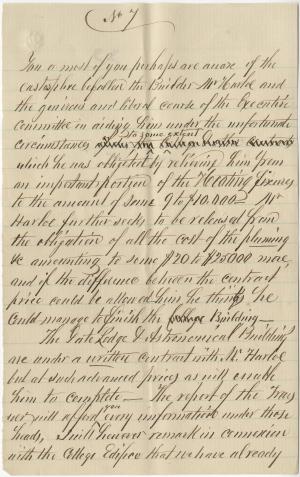 No 7
You or most of you perhaps are aware of the
catastrophe befallen the Builder Mr Harloe and
the generous and liberal course of the Executive
Committee in aiding him under the unfortunate
to some extent
circumstances
which he was obligated by relieving him from
an important portion of the Heating fixures
to the amount of some 9 to $10.000 — Mr
Harloe further seeks to be released from
the obligation of all the cost of the pluming
&c amounting to some $20 to $25000 more,
and if the difference between the contract
price could be allowed him he thinks he
could manage to finish the Building —
The Gate Lodge & Astronomical Building
are under a written contract with Mr Harloe
but at such advanced prices as will enable
him to complete — The report of the Treas
urer will afford you every information under those
heads, I will however remark in connexion
with the College Edifice that we have already